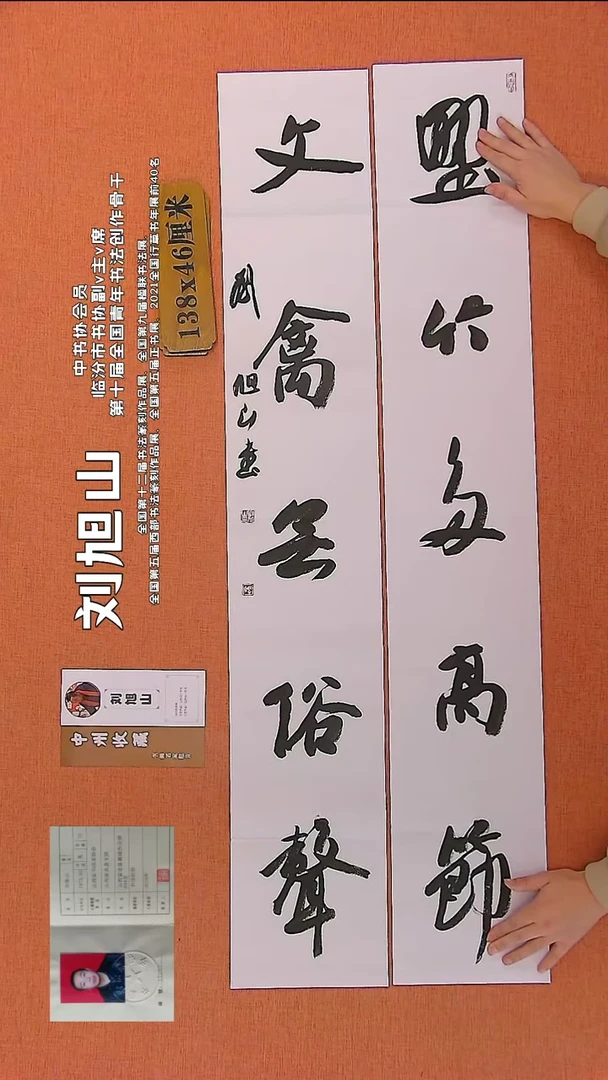 竹多高節
文禽無俗聲
劉旭山書
138x46厘米
中书协会员
临汾市书协副v主v席
第十届全国青年书法创作骨干
刘旭山
全国第十二届书法篆刻作品展、全国第九届楹联书法展、
全国第五届西部书法篆刻作品展、全国第五届正书展、2021全国行草书年展前40名
刘旭山
中州收藏